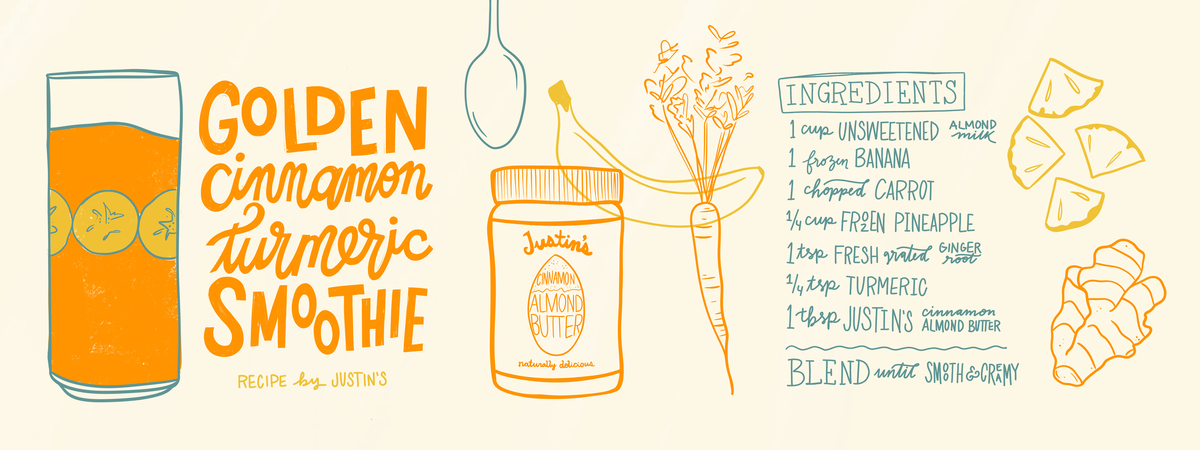 GOLDEN
cinnamon
turmeric
SMOOTHIE
RECIPE by JUSTIN'S
Justin's
CINNAMON
ALMOND
BUTTER
naturally delicious
INGREDIENTS
1 cup UNSWEETENED ALMOND milk
1 frozen BANANA
1 chopped CARROT
1/4 cup FROZEN PINEAPPLE
1 tsp FRESH grated GINGER root
1/4 tsp TURMERIC
1 tbsp JUSTIN'S cinnamon ALMOND BUTTER
BLEND until SMOOTH & CREAMY